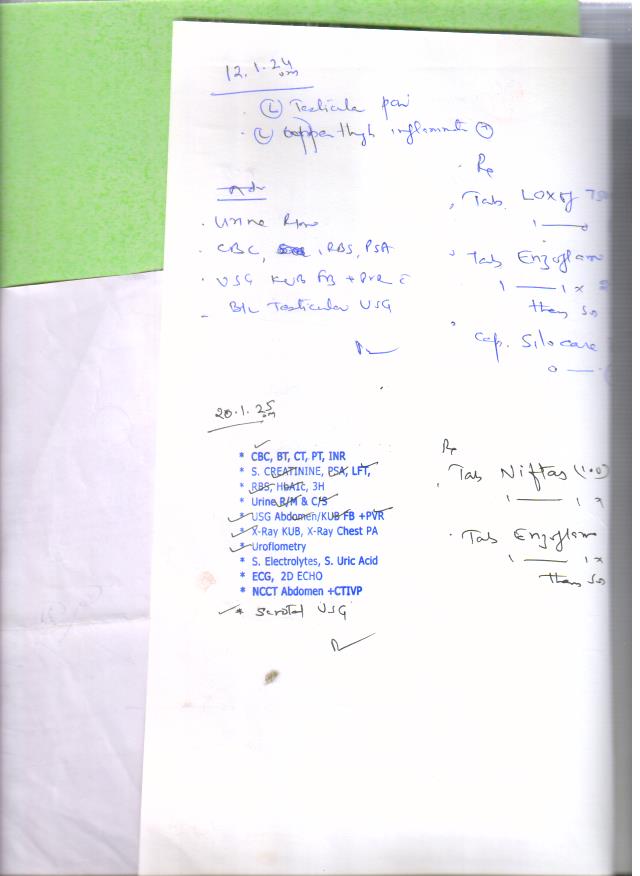 12.1.24
(L) Testicular pain
(L) upper thigh inflammation (+)
Adv
Urine R/M
CBC, RBS, PSA
USG KUB FB + PVR
B/L Testicular USG
Rx
Tab. LOXOF 750
1
Tab Enzoflam
1 — 1 x
then SOS
Cap. Silocare
0 —
20.1.25
* CBC, BT, CT, PT, INR
* S. CREATININE, PSA, LFT,
* RBS, HbA1C, 3H
* Urine R/M & C/S
* USG Abdomen/KUB FB +PVR
* X-Ray KUB, X-Ray Chest PA
* Uroflometry
* S. Electrolytes, S. Uric Acid
* ECG, 2D ECHO
* NCCT Abdomen +CTIVP
* Scrotal USG
Rx
Tab Niftas (100)
1 — 1 x
Tab Enzoflam
1 — 1 x
then SOS